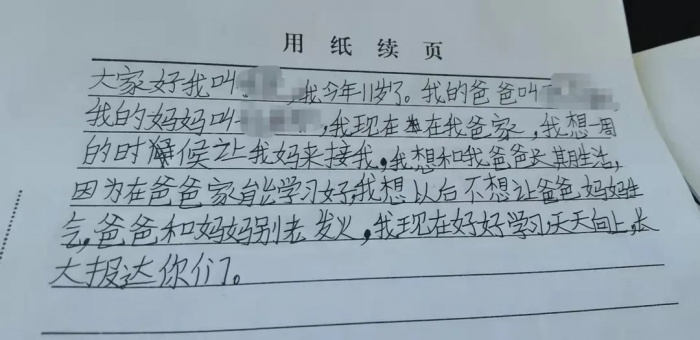 用纸续页
大家好我叫,我今年11岁了。我的爸爸叫
我的妈妈叫,我现在在我爸家,我想一周
的时候让我妈来接我,我想和我爸爸长期生活,
因为在爸爸家能学习好,我想以后不想让爸爸妈妈生
气,爸爸和妈妈别老发火,我现在好好学习天天向上,长
大报达你们了。